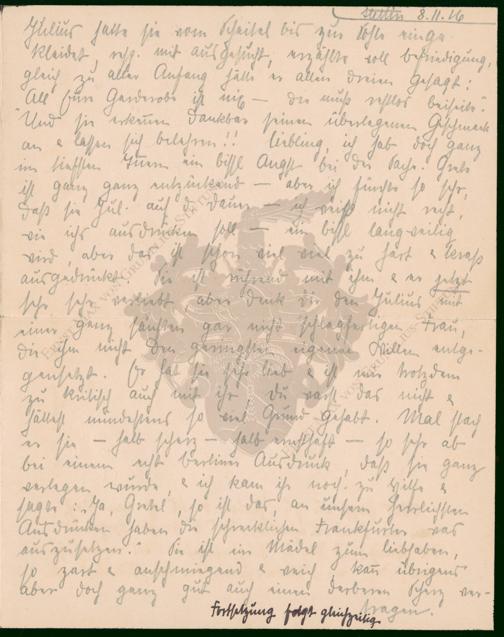 Stettin 8.11.16
Julius hatte sie vom Scheitel bis zur Sohle einge-
kleidet, resp. mit ausgesucht, erzählte voll Befriedigung,
gleich zu aller Anfang hätte er allen dreien gesagt:
All Eure Garderobe ist nix — die muß restlos beiseite.
Und sie erkennen dankbar seinen überlegenen Geschmack
an & lassen sich belehren!! Liebling, ich hab doch ganz
im tiefsten Innern ein bissl Angst bei der Sache. Gretl
ist ganz ganz entzückend — aber ich fürchte so sehr,
daß sie Jul. auf d. Dauer — ich weiß nicht recht,
wie ich's ausdrücken soll — ein bissl langweilig
wird, aber das ist schon viel viel zu hart & kraß
ausgedrückt. Sie ist rührend mit ihm & er jetzt
sehr sehr verliebt aber denk dir den Julius mit
einer ganz sanften gar nicht schlagfertigen Frau,
die ihm nicht den geringsten eigenen Willen entge-
gensetzt. Er hat sie sehr lieb & ist mir trotzdem
zu kritisch auch mit ihr. Du warst das nicht &
hättest mindestens so viel Grund gehabt. Mal stach
er sie — halb scherz — halb ernsthaft — so sehr ab
bei einem echt Berliner Ausdruck, daß sie ganz
verlegen wurde, & ich kam ihr noch zu Hilfe &
sagte: Ja, Gretel, so ist das, an unsern herrlichsten
Ausdrücken haben die schrecklichen Frankfurter was
auszusetzen. Sie ist ein Mädel zum liebhaben,
so zart & anschmiegend & weich kann übrigens
aber doch ganz gut auch einen derberen Scherz ver-
tragen.
Fortsetzung folgt gleichzeitig